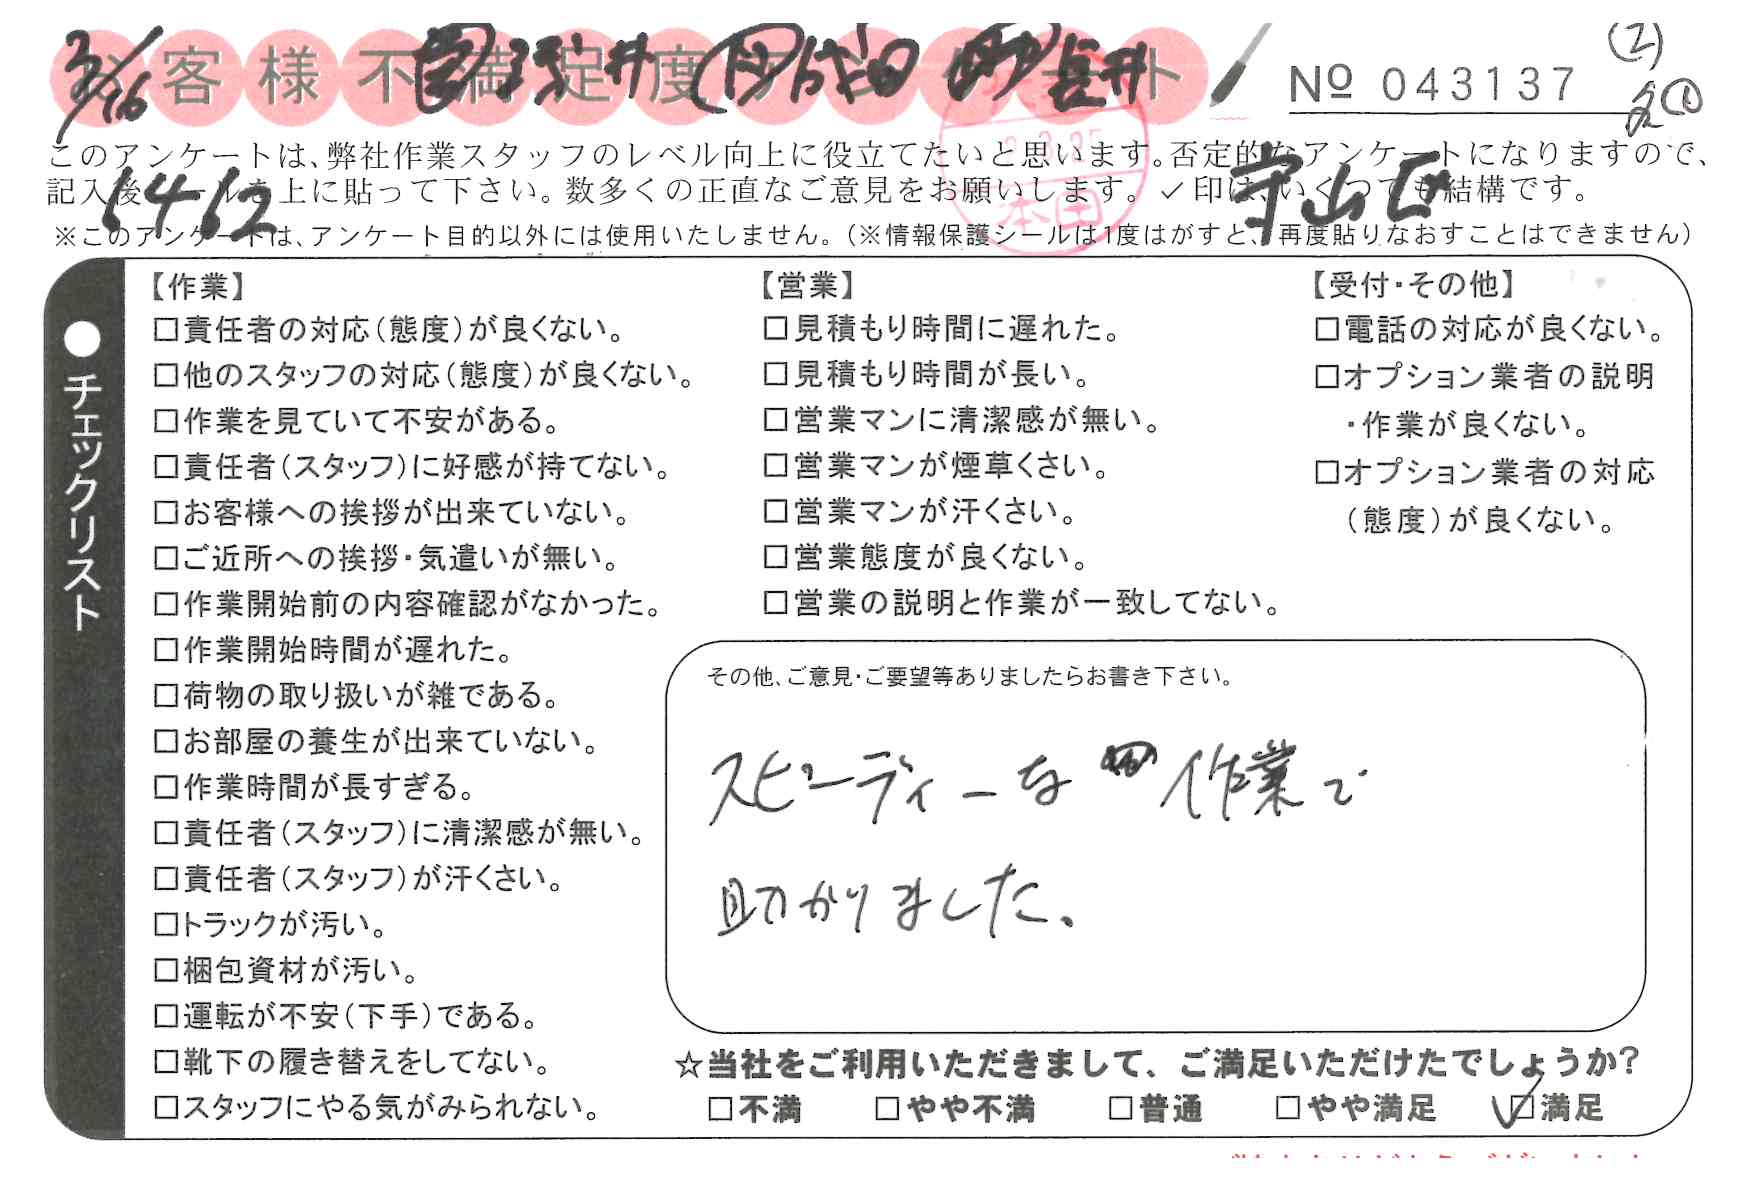 3/16
お客様不満足度アンケート
Nº 043137
このアンケートは、弊社作業スタッフのレベル向上に役立てたいと思います。否定的なアンケートになりますので、
記入後シールを上に貼って下さい。数多くの正直なご意見をお願いします。✓印は、いくつでも結構です。
6462
守山区
※このアンケートは、アンケート目的以外には使用いたしません。(※情報保護シールは1度はがすと、再度貼りなおすことはできません)
●チェックリスト
【作業】
□責任者の対応(態度)が良くない。
□他のスタッフの対応(態度)が良くない。
□作業を見ていて不安がある。
□責任者(スタッフ)に好感が持てない。
□お客様への挨拶が出来ていない。
□ご近所への挨拶・気遣いが無い。
□作業開始前の内容確認がなかった。
□作業開始時間が遅れた。
□荷物の取り扱いが雑である。
□お部屋の養生が出来ていない。
□作業時間が長すぎる。
□責任者(スタッフ)に清潔感が無い。
□責任者(スタッフ)が汗くさい。
□トラックが汚い。
□梱包資材が汚い。
□運転が不安(下手)である。
□靴下の履き替えをしてない。
□スタッフにやる気がみられない。
【営業】
□見積もり時間に遅れた。
□見積もり時間が長い。
□営業マンに清潔感が無い。
□営業マンが煙草くさい。
□営業マンが汗くさい。
□営業態度が良くない。
□営業の説明と作業が一致してない。
【受付・その他】
□電話の対応が良くない。
□オプション業者の説明
・作業が良くない。
□オプション業者の対応
(態度)が良くない。
その他、ご意見・ご要望等ありましたらお書き下さい。
スピーディーな作業で
助かりました。
☆当社をご利用いただきまして、ご満足いただけたでしょうか?
□不満 □やや不満 □普通 □やや満足 ☑満足